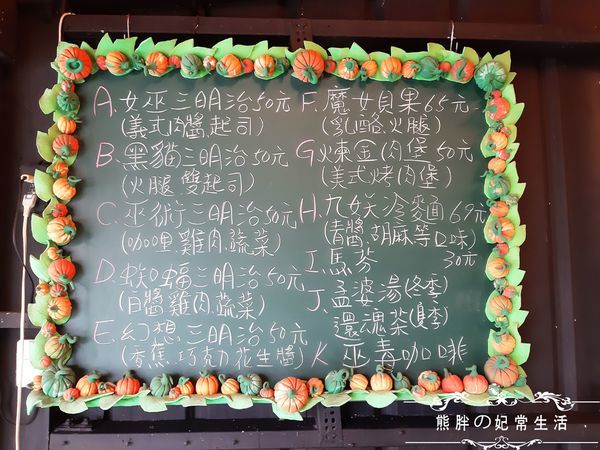 A.女巫三明治50元
(義式肉醬.起司)
B.黑貓三明治50元
(火腿.雙起司)
C.巫術三明治50元
(咖哩雞肉.蔬菜)
D.蝙蝠三明治50元
(白醬雞肉.蔬菜)
E.幻想三明治50元
(香蕉.巧克力.花生醬)
F.魔女貝果65元
(乳酪.火腿)
G.煉金肉堡50元
(美式烤肉堡)
H.九妖冷麵69元
(青醬.胡麻等口味)
I.馬芬 30元
J.孟婆湯(冬季)
還魂茶(夏季)
K 巫毒咖啡
熊胖の妃常生活